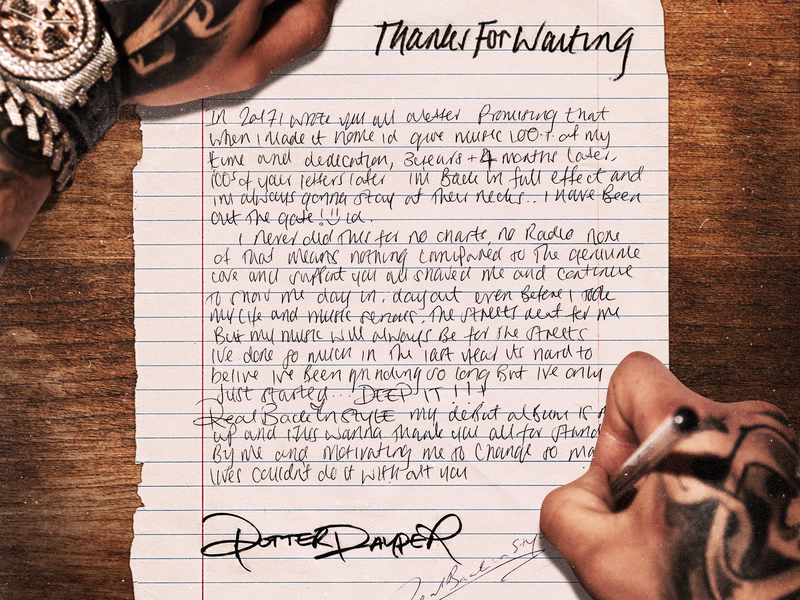 Thanks For Waiting
In 2017 I wrote you all a letter Promising that
when I made it home id give music 100% of my
time and dedication, 3 years + 4 months later,
100s of your letters later im Back in full effect and
im always gonna stay at their necks... I have Been
out the gate! id.
I never did this for no charts, no Radio none
of that means nothing compared to the genuine
love and support you all showed me and continue
to show me day in, day out even Before I took
my life and music serious. The streets dent for me
But my music will always Be for the streets
Ive done so much in the last year its hard to
belive ive Been grinding so long But ive only
just started... DEEP IT!!!
Real Back In STYLE my debut album is
up and I Jus wanna thank you all for
By me and motivating me to change so
lives couldnt do it without you
POTTER PAYPER
Real Back in Style